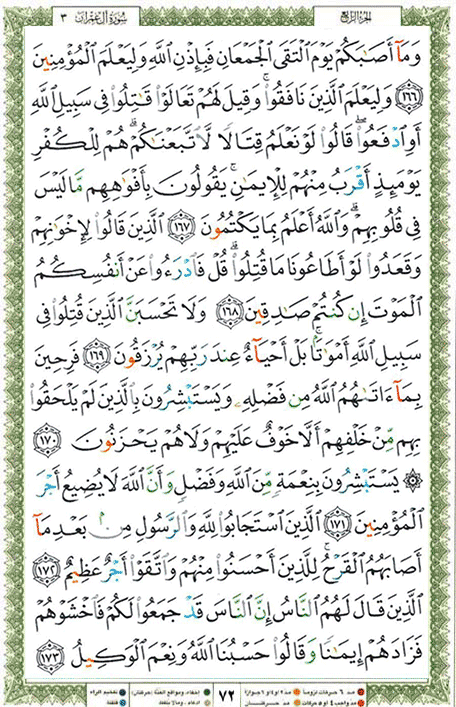 سُورَةُ آلِ عِمْرَان ٣
الجزء الرابع
وَمَآ أَصَٰبَكُمْ يَوْمَ ٱلْتَقَى ٱلْجَمْعَانِ فَبِإِذْنِ ٱللَّهِ وَلِيَعْلَمَ ٱلْمُؤْمِنِينَ
١٦٦ وَلِيَعْلَمَ ٱلَّذِينَ نَافَقُوا۟ ۚ وَقِيلَ لَهُمْ تَعَالَوْا۟ قَٰتِلُوا۟ فِى سَبِيلِ ٱللَّهِ
أَوِ ٱدْفَعُوا۟ ۖ قَالُوا۟ لَوْ نَعْلَمُ قِتَالًا لَّٱتَّبَعْنَٰكُمْ ۗ هُمْ لِلْكُفْرِ
يَوْمَئِذٍ أَقْرَبُ مِنْهُمْ لِلْإِيمَٰنِ ۚ يَقُولُونَ بِأَفْوَٰهِهِم مَّا لَيْسَ
فِى قُلُوبِهِمْ ۗ وَٱللَّهُ أَعْلَمُ بِمَا يَكْتُمُونَ ١٦٧ ٱلَّذِينَ قَالُوا۟ لِإِخْوَٰنِهِمْ
وَقَعَدُوا۟ لَوْ أَطَاعُونَا مَا قُتِلُوا۟ ۗ قُلْ فَٱدْرَءُوا۟ عَنْ أَنفُسِكُمُ
ٱلْمَوْتَ إِن كُنتُمْ صَٰدِقِينَ ١٦٨ وَلَا تَحْسَبَنَّ ٱلَّذِينَ قُتِلُوا۟ فِى
سَبِيلِ ٱللَّهِ أَمْوَٰتًۢا ۚ بَلْ أَحْيَآءٌ عِندَ رَبِّهِمْ يُرْزَقُونَ ١٦٩ فَرِحِينَ
بِمَآ ءَاتَىٰهُمُ ٱللَّهُ مِن فَضْلِهِۦ وَيَسْتَبْشِرُونَ بِٱلَّذِينَ لَمْ يَلْحَقُوا۟
بِهِم مِّنْ خَلْفِهِمْ أَلَّا خَوْفٌ عَلَيْهِمْ وَلَا هُمْ يَحْزَنُونَ ١٧٠
۞ يَسْتَبْشِرُونَ بِنِعْمَةٍ مِّنَ ٱللَّهِ وَفَضْلٍ وَأَنَّ ٱللَّهَ لَا يُضِيعُ أَجْرَ
ٱلْمُؤْمِنِينَ ١٧١ ٱلَّذِينَ ٱسْتَجَابُوا۟ لِلَّهِ وَٱلرَّسُولِ مِنۢ بَعْدِ مَآ
أَصَابَهُمُ ٱلْقَرْحُ ۚ لِلَّذِينَ أَحْسَنُوا۟ مِنْهُمْ وَٱتَّقَوْا۟ أَجْرٌ عَظِيمٌ ١٧٢
ٱلَّذِينَ قَالَ لَهُمُ ٱلنَّاسُ إِنَّ ٱلنَّاسَ قَدْ جَمَعُوا۟ لَكُمْ فَٱخْشَوْهُمْ
فَزَادَهُمْ إِيمَٰنًا وَقَالُوا۟ حَسْبُنَا ٱللَّهُ وَنِعْمَ ٱلْوَكِيلُ ١٧٣
مد ٦ حركات لزوماً مد ٢ أو ٤ أو ٦ جوازاً
مد واجب ٤ أو ٥ حركات مد حركتان
٧٢
إخفاء، ومواقع الغنّة (حركتان) تفخيم الراء
إدغام، وما لا يلفظ قلقلة